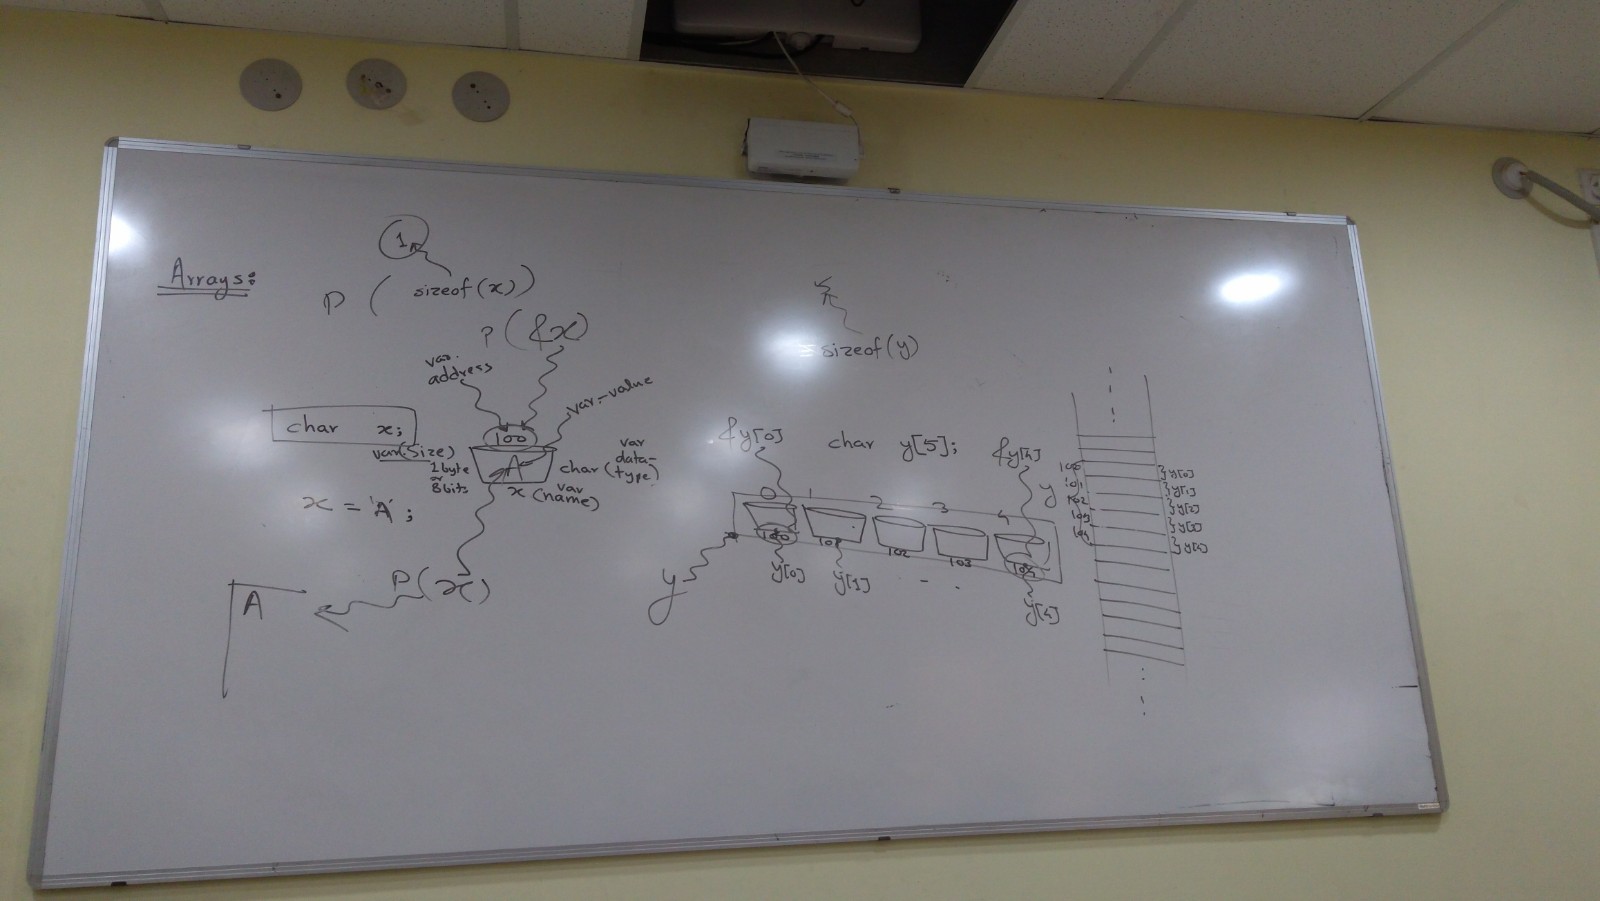 Arrays:
1
P ( sizeof(x))
P (&x)
var. address
var-value
char x;
100
var(size)
1byte
8bits
A
char (var data-type)
x (var name)
x = 'A';
P(x)
A
5
sizeof(y)
&y[0]
char y[5];
&y[4]
0 1 2 3 4
100 101 102 103 104
y
y[0] y[1] - - y[4]
y
100 }y[0]
101 }y[1]
102 }y[2]
103 }y[3]
104 }y[4]